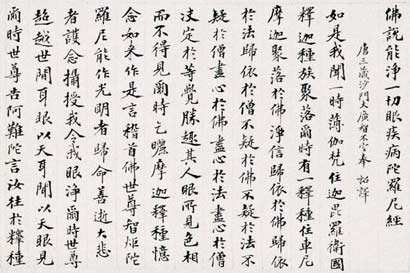 佛說能淨一切眼疾病陀羅尼經
唐三藏沙門大廣智不空奉 詔譯
如是我聞一時薄伽梵住迦毘羅衛國
釋迦種族聚落爾時有一釋種住車尼
摩迦聚落於佛淨信歸依於佛歸依
於法歸依於僧不疑於佛不疑於法不
疑於僧盡心於佛盡心於法盡心於僧
決定於等覺勝趣其人眼所見色相
而不得見爾時乞曬摩迦釋種憶
念如來作是言稽首佛世尊智炬陀
羅尼能作光明者歸命善逝大悲
者護念攝受我令我眼淨爾時世尊
超越世間耳眼以天耳聞以天眼見
爾時世尊告阿難陀言汝往於釋種